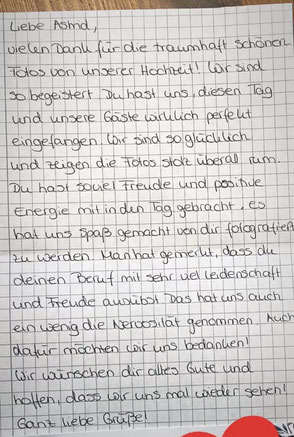 Liebe Astrid,
vielen Dank für die traumhaft schönen
Fotos von unserer Hochzeit! Wir sind
so begeistert Du hast uns, diesen Tag
und unsere Gäste wirklich perfekt
eingefangen. Wir sind so glücklich
und zeigen die Fotos stolz überall rum.
Du hast soviel Freude und positive
Energie mit in den Tag gebracht, es
hat uns Spaß gemacht von dir fotografiert
zu werden. Man hat gemerkt, dass du
deinen Beruf mit sehr viel Leidenschaft
und Freude ausübst. Das hat uns auch
ein wenig die Nervosität genommen. Auch
dafür möchten wir uns bedanken!
Wir wünschen dir alles Gute und
hoffen, dass wir uns mal wieder sehen!
Ganz liebe Grüße!